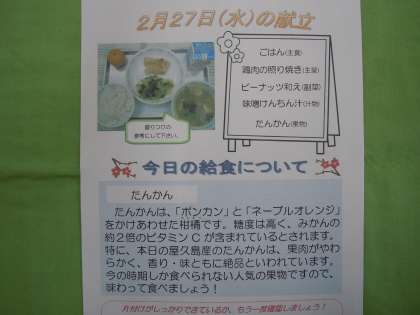 2月27日(水)の献立
ごはん(主食)
鶏肉の照り焼き(主菜)
ピーナッツ和え(副菜)
味噌けんちん汁(汁物)
たんかん(果物)
盛りつけの
参考にして下さい。
今日の給食について
たんかん
たんかんは、「ポンカン」と「ネーブルオレンジ」
をかけあわせた柑橘です。糖度は高く、みかんの
約2倍のビタミンCが含まれているとされます。
特に、本日の屋久島産のたんかんは、果肉がやわ
らかく、香り・味ともに絶品といわれています。
今の時期しか食べられない人気の果物ですので、
味わって食べましょう!
片付けがしっかりできているか、もう一度確認しましょう!